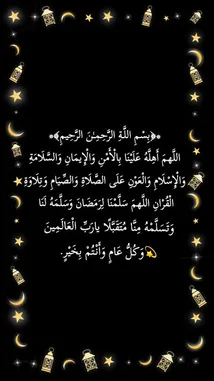 ﴿بِسْمِ اللَّهِ الرَّحْمِنِ الرَّحِيمِ﴾
اللَّهمَ أَهِلَّهُ عَلَيْنَا بِالْأَمْنِ وَالْإِيمَانِ وَالسَّلَامَةِ
وَالْإِسْلَامِ وَالْعَوْنِ عَلَى الصَّلَاةِ وَالصِّيَامِ وَتِلَاوَةِ
الْقُرْآنِ اللَّهمَ سَلِّمْنَا لِرَمَضَانَ وَسَلِّمْهُ لَنَا
وَتَسَلَّمْهُ مِنَّا مُتَقَبَّلًا يارَبِّ الْعَالَمِينَ
وَكُلُّ عَامٍ وَأَنْتُمْ بِخَيْرٍ.